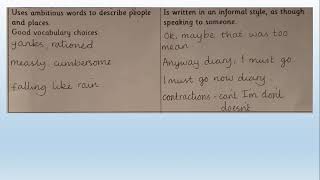 Uses ambitious words to describe people
and places.
Good vocabulary choices
yanks, rationed
measly, cumbersome
falling like rain
Is written in an informal style, as though
speaking to someone.
Ok, maybe that was too
mean
Anyway diary, I must go
I must go now diary
contractions - can't I'm don't
doesn't